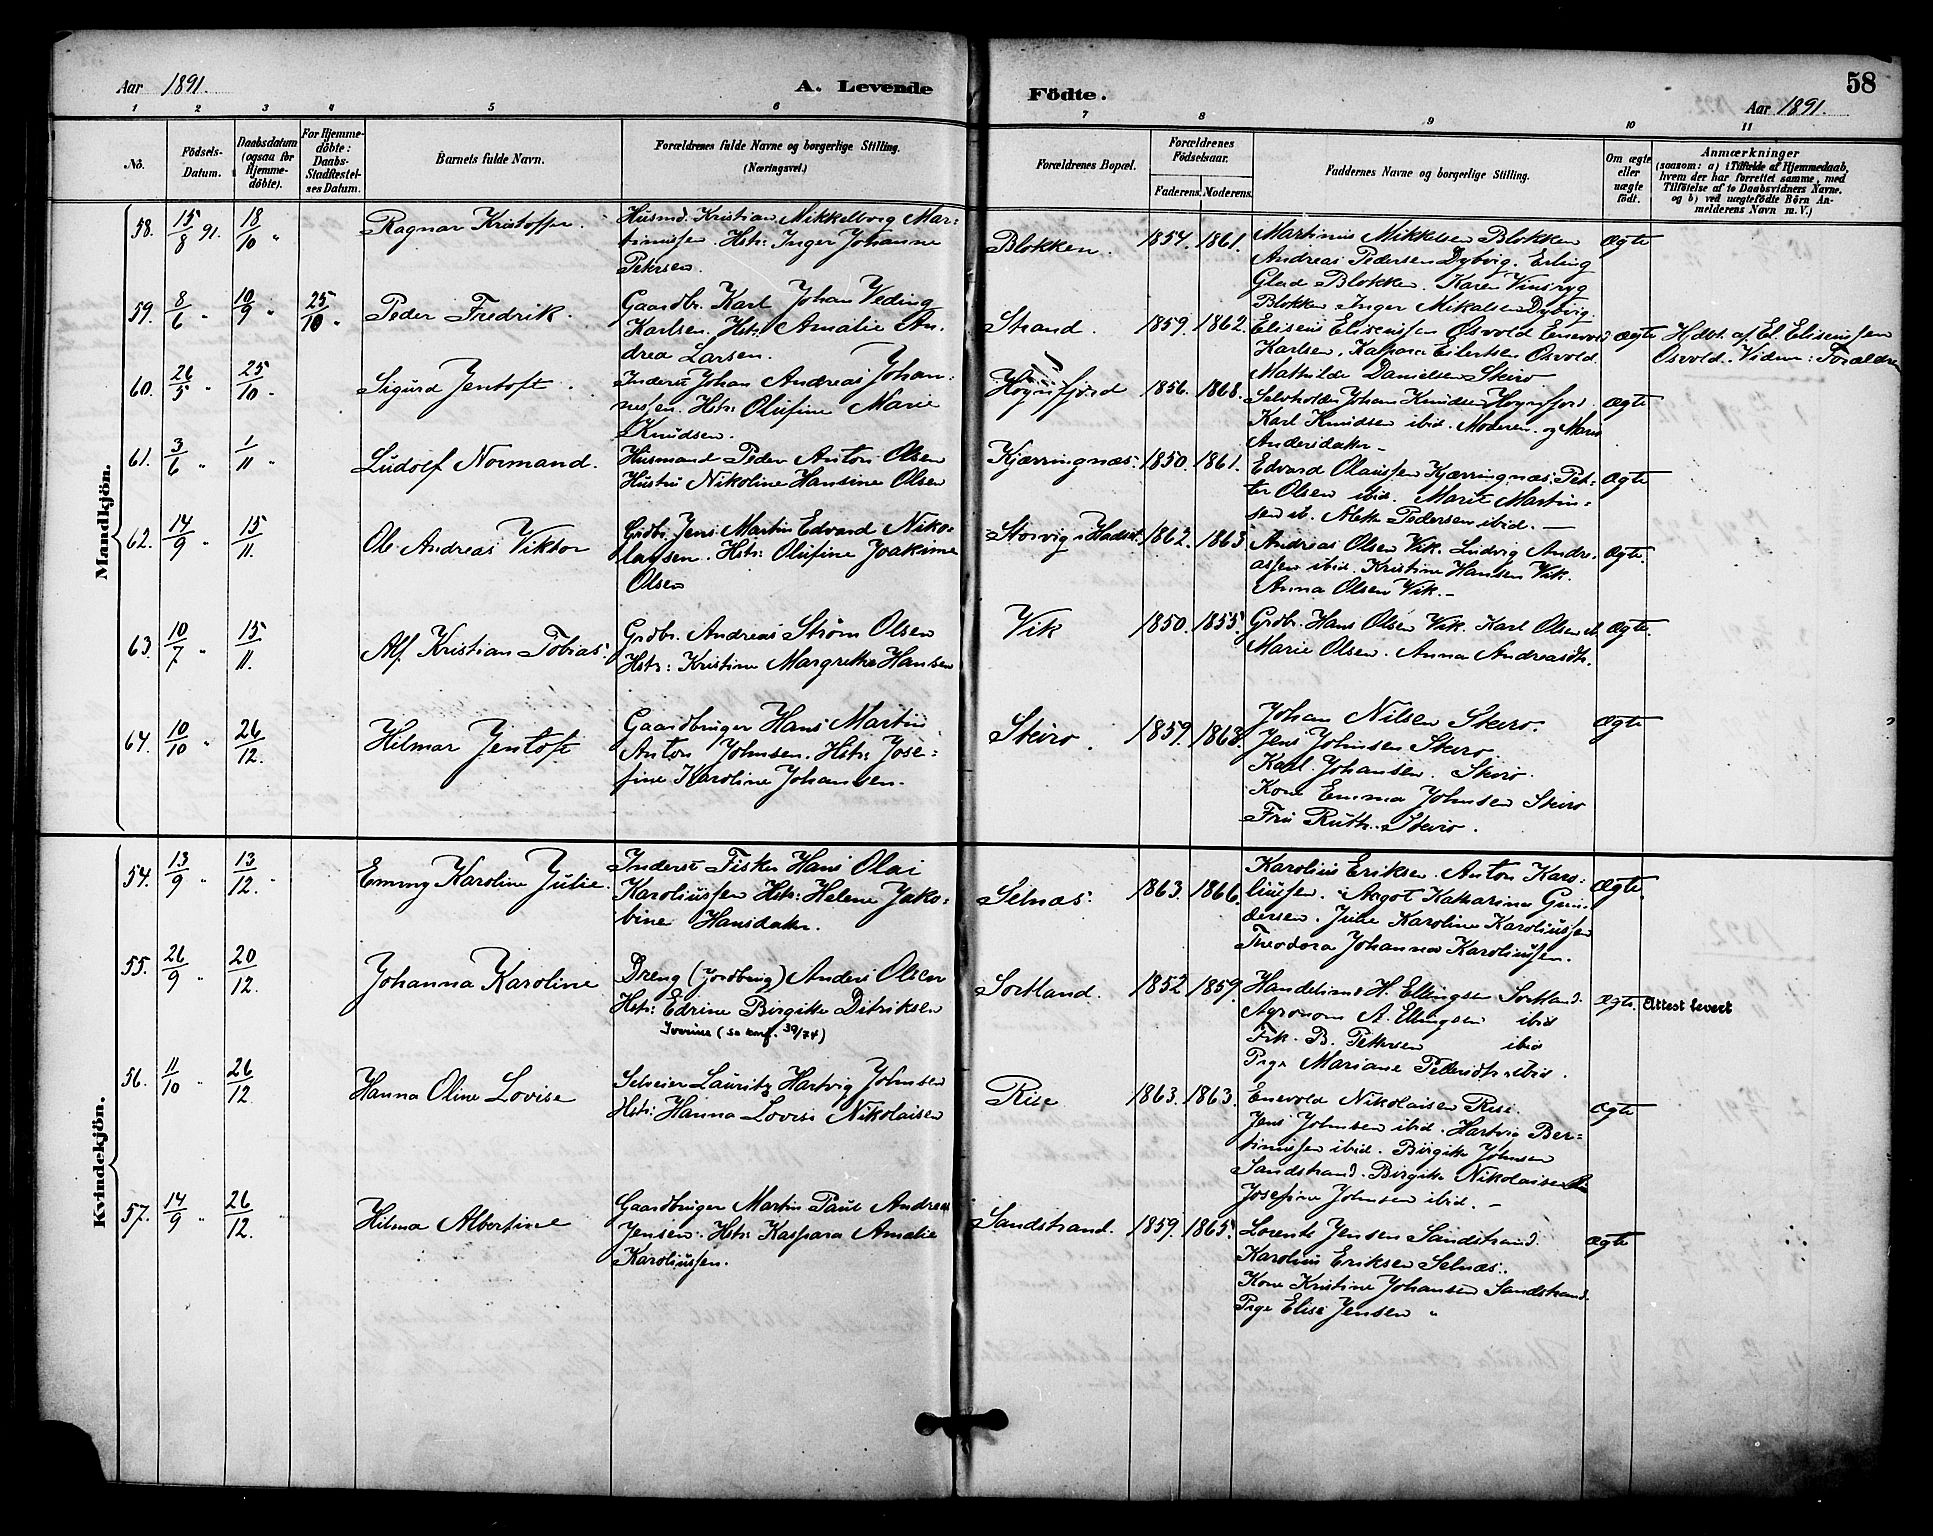 Aar 1891.
A. Levende Födte.
58
Aar 1891.
1 2 3 4 5 6 7 8 9 10 11
No.
Födsels-Datum.
Daabsdatum (ogsaa for Hjemme-döbte).
For Hjemme-döbte: Daabs-Stadfæstel-ses Datum.
Barnets fulde Navn.
Forældrenes fulde Navne og borgerlige Stilling.
(Næringsvei.)
Forældrenes Bopæl.
Forældrenes Födselsaar.
Faderens. Moderens.
Faddernes Navne og borgerlige Stilling.
Om ægte eller uægte födt.
Anmærkninger
(saasom: a) i Tilfælde af Hjemmedaab,
hvem der har forrettet samme, med
Tilföielse af to Daabsvidners Navne.
og b) ved uægtefödte Börn An-
melderens Navn m. V.)
Mandkjön.
58. 15/8 91. 18/10 " Ragnar Kristoffer. Husmd. Kristian Mikkelborg Mar-
tinussen. Hstr: Inger Johanne
Petersen.
Blokken. 1854. 1861. Martinus Mikkelsen Blokken
Andreas Pedersen Dybvig. Erling
Glad Blokken. Karen Vinsryg
Blokken Inger Mikalsen Dybvig.
ægte
59. 8/6 " 10/9 " 25/10 " Peder Fredrik. Gaardbr. Karl Johan Veding
Karlsen. Hstr: Amalie An-
drea Larsen.
Strand. 1859. 1862. Eliseus Eliseussen Osvold Enevold
Karlsen. Kaspara Eilertsen Osvold.
Mathilde Danielsen Skeiro
ægte Hdbt. af El. Eliseussen
Osvold. Vidner: Forældre
60. 26/5 " 25/10 " Sigurd Jentoft. Inderst Johan Andreas Johan-
nessen. Hstr: Olufine Marie
Knudsen.
Hognfjord 1856. 1868. Selvholder Johan Knudsen Hognfjord
Karl Knudsen ibid. Moderen og Maria
Andersdatr
ægte
61. 3/6 " 1/11 " Ludolf Normand. Husmand Peder Anton Olsen
Hustru Nikoline Hansine Olsen
Kjærringnæs. 1850. 1861. Edvard Olaussen Kjærringnæs. Pet-
ter Olsen ibid. Marie Martin-
sen ib. Alette Pedersen ibid.
ægte
62. 14/9 " 15/11. Ole Andreas Viktor Grdbr. Jens Martin Edvard Niko-
laysen. Hstr: Olufine Joakime
Olsen
Storvig i Hadsel. 1862. 1863 Andreas Olsen Vik. Ludvig Andre-
assen ibid. Kristine Hansen Vik.
Anna Olsen Vik.
ægte.
63. 10/7 " 15/11. Alf Kristian Tobias. Grdbr. Andreas Strøm Olsen
Hstr: Kristine Margrethe Hansen
Vik 1850. 1855. Grdbr. Hans Olsen Vik. Karl Olsen ib
Marie Olsen. Anna Andreasdtr.
ægte.
64. 10/10 " 26/12. Hilmar Jentoft Gaardbruger Hans Martin
Anton Johnsen. Hstr: Jose-
fine Karoline Johansen.
Skeiro. 1859. 1868. Johan Nilsen Skeiro.
Jens Johnsen Skeiro.
Karl Johansen. Skeiro.
Kone Emma Johnsen Skeiro
Fru Ruth. Skeiro.
ægte
Kvindekjön.
54. 13/9 " 13/12. " Emmy Karoline Julie. Inderst Fisker Hans Olai
Karoliussen Hstr: Helene Jako-
bine Hansdatr.
Selnæs. 1863. 1866. Karolius Eriksen. Anton Karo-
liussen. Katharina Gun-
dersen. Julie Karoline Karoliussen
Theodora Johanna Karoliussen.
ægte.
55. 26/9 " 20/12. Johanna Karoline Dreng (Jordbrug) Anders Olsen
Hstr: Edrine Birgitte Ditriksen
Iverine (se konf. 39/74)
Sortland. 1852 1859. Handelsm H. Ellingsen Sortland.
Agronom A. Ellingsen ibid
Frk. B. Petersen ibid
Pige Mariane ibid.
ægte. Attest levert
56. 11/10 " 26/12. Hanna Oline Lovise Selveier Lauritz Hartvig Johnsen
Hstr: Hanna Lovise Nikolaisen
Rise 1863. 1863. Enevold Nikolaisen Rise.
Jens Johnsen ibid. Hartvig Ber-
tinussen ibid. Birgitte Johnsen
Sandstrand. Birgitte Nikolaisen
Josefine Johnsen ibid.
ægte
57. 14/9 " 26/12. Hilma Albertine Gaardbruger Martin Paul Andreas
Jensen. Hstr: Kaspara Amalie
Karoliussen.
Sandstrand. 1859. 1865. Lorents Jensen Sandstrand.
Karolius Eriksen Selnæs.
Kone Kristine Johansen Sandstrand.
Pige Elise Jensen "
ægte